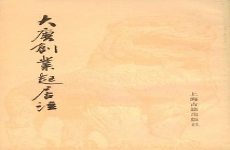 大唐創業起居注
上海古籍出版社